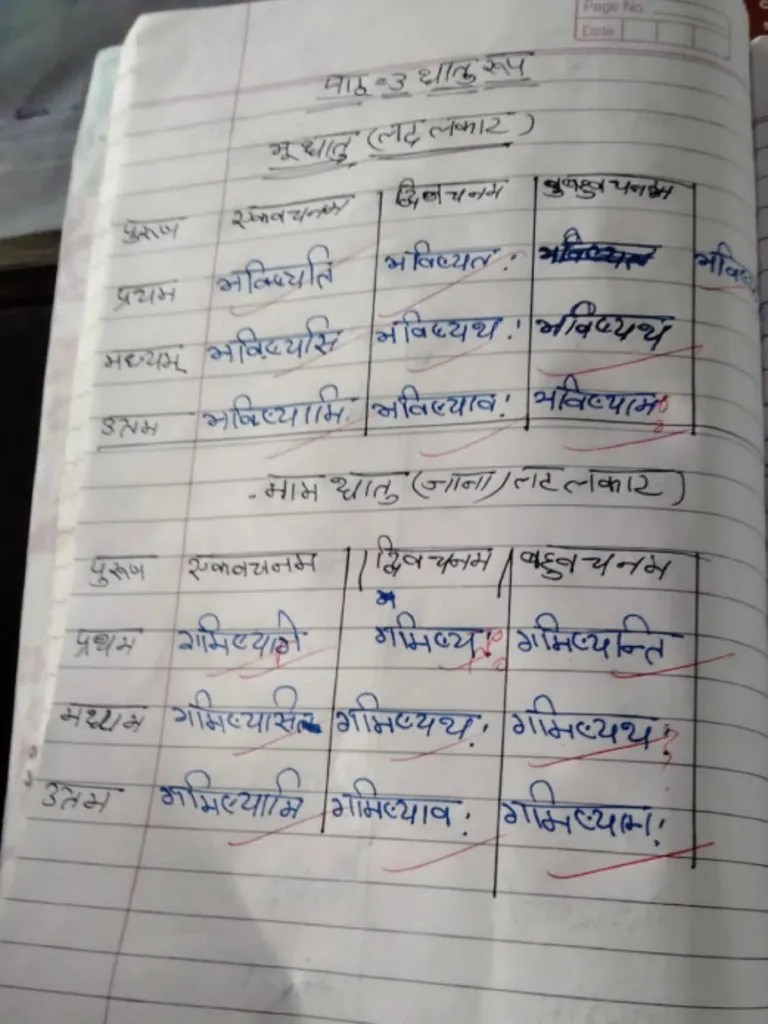 Page No.
Date
पाठ-3 धातु रूप
भू धातु (लट लकार)
पुरूष एकवचनम द्विवचनम बहुवचनम
प्रथम भविष्यति भविष्यत:
मध्यम् भविष्यसि भविष्यथ: भविष्यथ
उत्तम भविष्यामि भविष्याव: भविष्याम:
धातु (जाना) लट लकार)
पुरूष एकवचनम द्विवचनम बहुवचनम
प्रथम गमिष्यन्ति
मध्यम गमिष्यथ: गमिष्यथ:
उत्तम गमिष्यामि गमिष्याव: गमिष्याम: